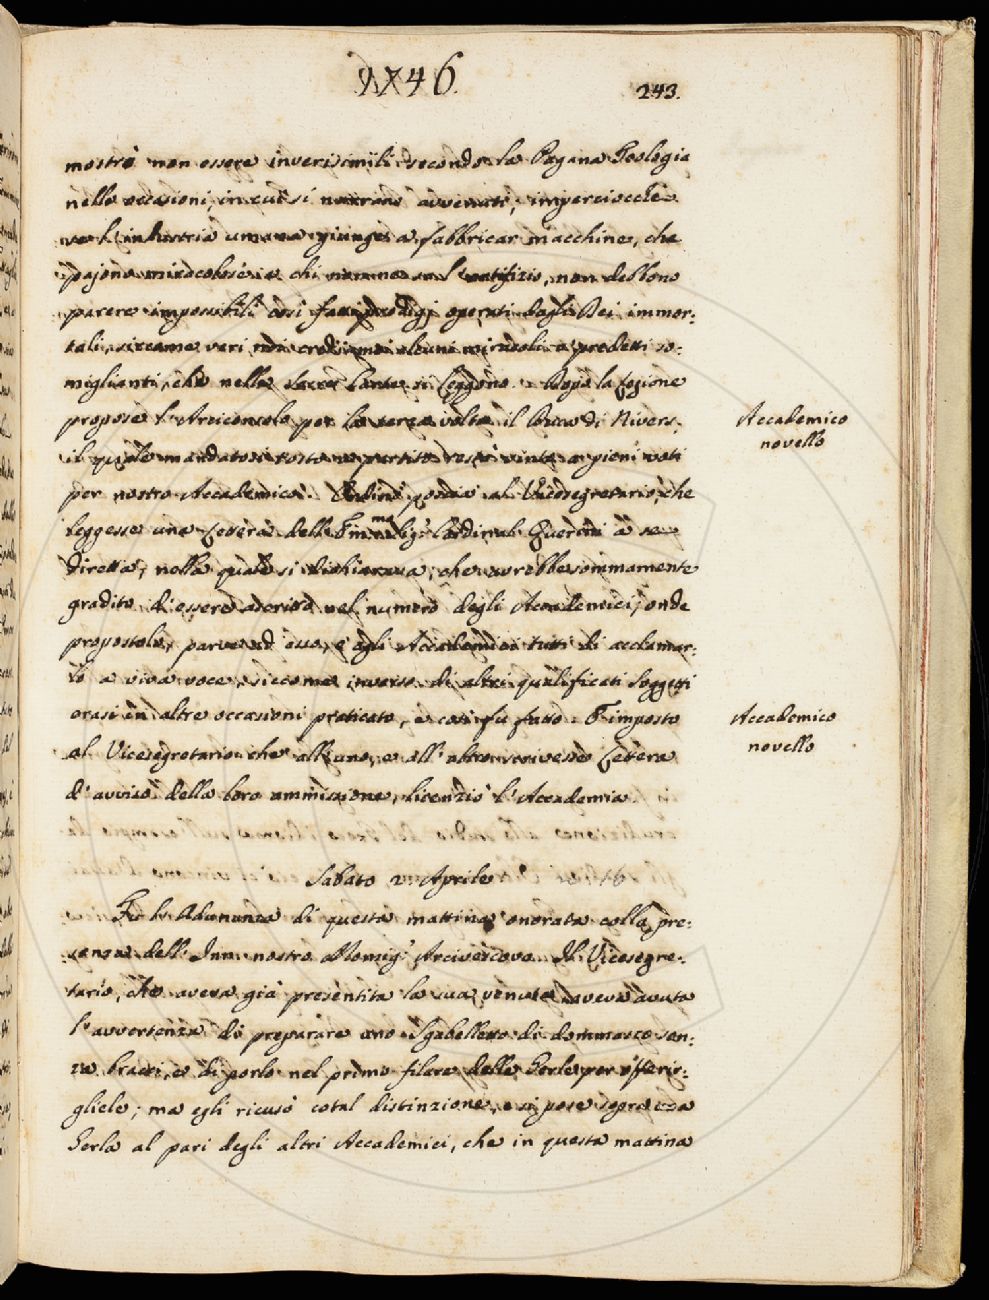 1746
243.
mostrò non essere inverisimili secondo la Pagana Teologia
nelle occasioni, in cui si narrano avvenuti; imperciocchè
se l'industria umana giunge a fabbricar macchine, che
pajono miracolose a chi non ne sa l'artifizio, non debbono
parere impossibili così fatti prodigj operati dagli Dei immor:
tali, siccome veri noi crediamo alcuni miracoli a predetti so:
miglianti, che nelle Sacre Carte si leggono. Dopo la Lezione
propose l'Arciconsolo per la terza volta il Duca di Nivers,
il quale mandatosi tosto a partito restò vinto a pieni voti
per nostro Accademico. Ordinò poscia al Vicesegretario, che
leggesse una Lettera dell'Emin.mo Sig.r Cardinal Querini a se
diretta, nella quale si dichiarava, che avrebbe sommamente
gradito di essere ascritto nel numero degli Accademici; onde
propostolo, parve ad esso, e agli Accademici tutti di acclamar:
lo a viva voce, siccome inverso di altri qualificati Soggetti
erasi in altre occasioni praticato, e così fu fatto. E imposto
al Vicesegretario che all'uno, e all'altro scrivesse Lettera
d'avviso della loro ammissione, licenziò l'Accademia.
Accademico
novello
Accademico
novello
Sabato 2 Aprile
Fu l'Adunanza di questa mattina onorata colla pre:
senza dell' nostro Monsig.r Arcivescovo. Il Vicesegre:
tario, che aveva già presentita la sua venuta aveva avuta
l'avvertenza di preparare uno Sgabelletto di dommasco sen:
za bracci, e di porlo nel primo filare delle Gerle per offerir:
glielo; ma egli ricusò cotal distinzione, e si pose sopra una
Gerla al pari degli altri Accademici, che in questa mattina